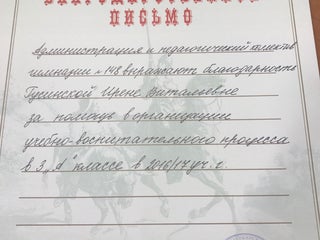 БЛАГОДАРСТВЕННОЕ
ПИСЬМО
Администрация и педагогический коллектив
гимназии №148 выражают благодарность
Гусинской Ирене Витальевне
за помощь в организации
учебно-воспитательного процесса
в 3 „А" классе в 2016/17 уч. г.